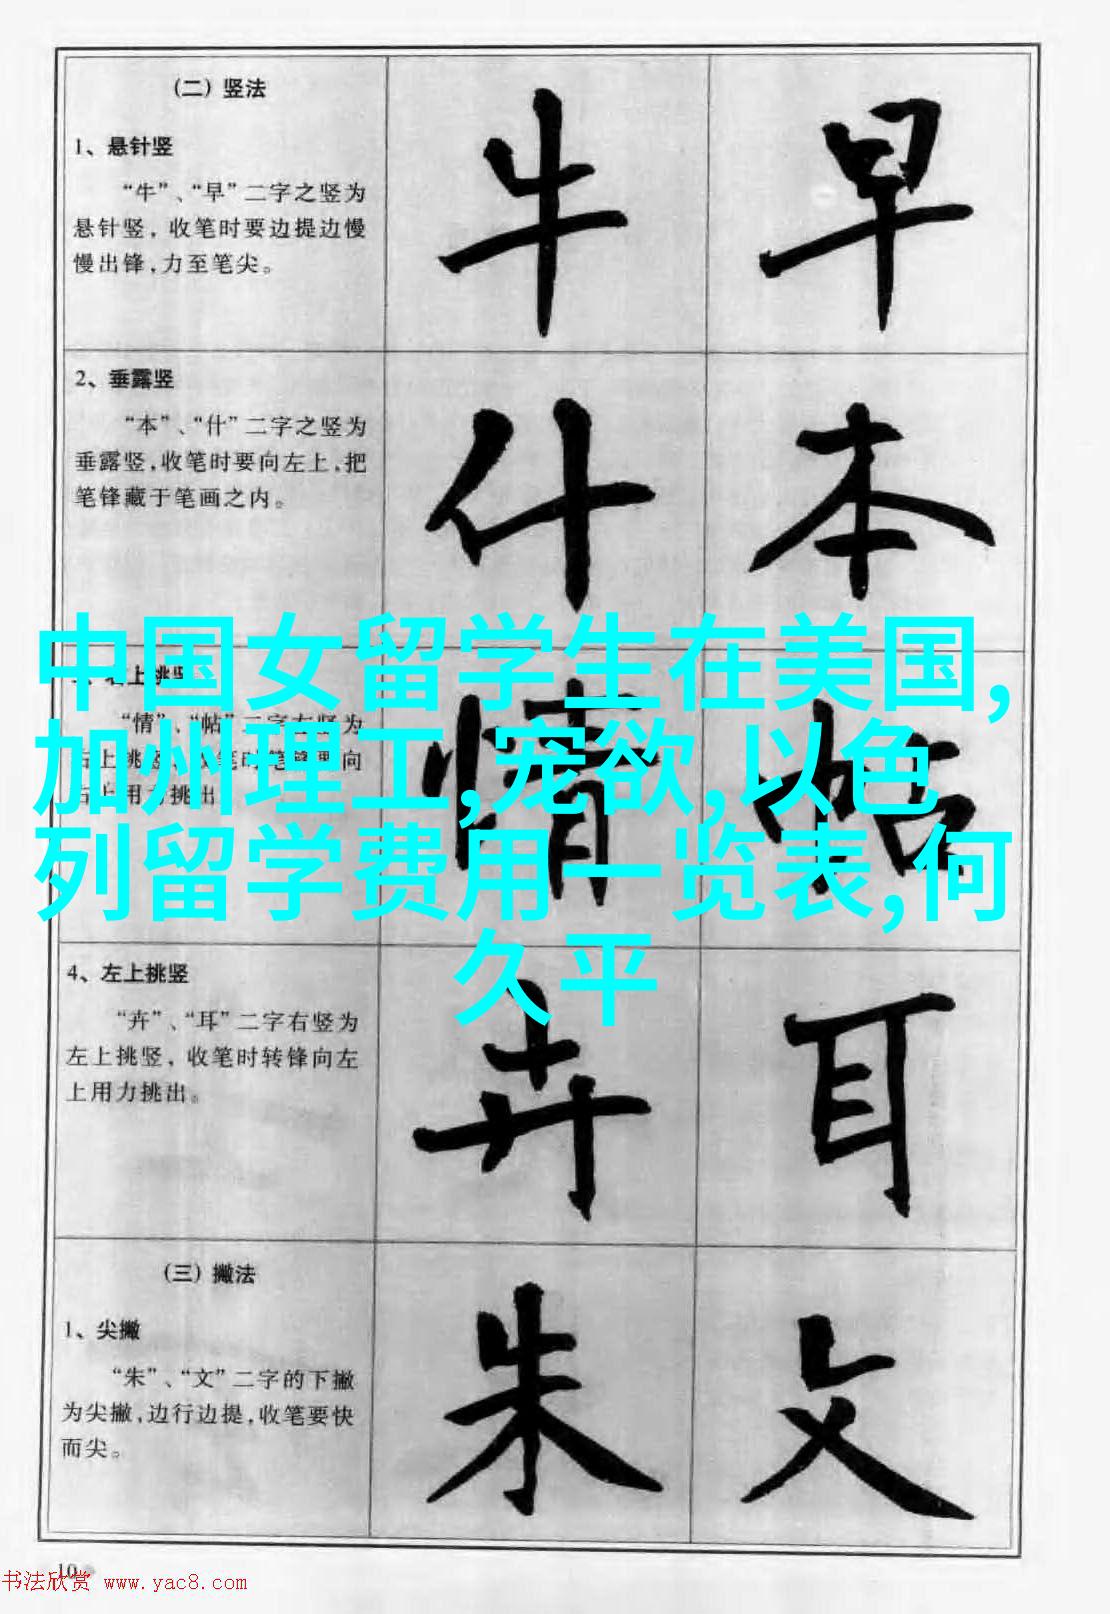 （二）竖法
1、悬针竖
“牛”、“早”二字之竖为
悬针竖，收笔时要边提边慢
慢出锋，力至笔尖。
牛 早
2、垂露竖
“本”、“什”二字之竖为
垂露竖，收笔时要向左上，把
笔锋藏于笔画之内。
什 本
中国女留学生在美国,
加州理工,宠欲,以色
列留学费用一览表,何
久平
右上挑竖
“情”、“帖”二字左竖为
右上挑竖
向
右上用力挑出
情 帖
4、左上挑竖
“卉”、“耳”二字右竖为
左上挑竖，收笔时转锋向左
上用力挑出。
卉 耳
（三）撇法
1、尖撇
“朱”、“文”二字的下撇
为尖撇，边行边提，收笔要快
而尖。
朱 文
10
书法欣赏 www.yac8.com